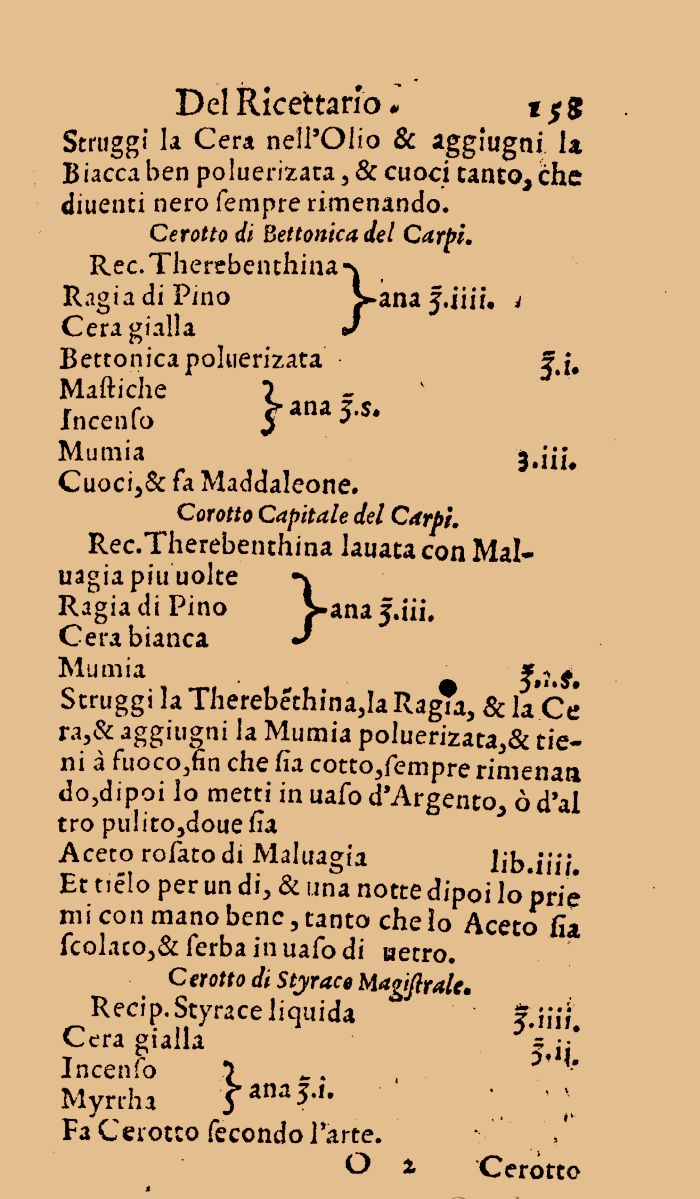 Del Ricettario. 158
Struggi la Cera nell'Olio & aggiugni la
Biacca ben poluerizata, & cuoci tanto, che
diuenti nero ſempre rimenando.
Cerotto di Bettonica del Carpi.
Rec. Therebenthina
Ragia di Pino } ana ℥.iiii.
Cera gialla
Bettonica poluerizata ℥.i.
Maſtiche
Incenſo } ana ℥.s.
Mumia ʒ.iii.
Cuoci,& fa Maddaleone.
Corotto Capitale del Carpi.
Rec. Therebenthina lauata con Mal-
uagia piu uolte
Ragia di Pino } ana ℥.iii.
Cera bianca
Mumia ℥.i.s.
Struggi la Therebēthina,la Ragia, & la Ce
ra,& aggiugni la Mumia poluerizata,& tie-
ni à fuoco,fin che ſia cotto,ſempre rimenan
do,dipoi lo metti in uaſo d'Argento, ò d'al
tro pulito,doue ſia
Aceto roſato di Maluagia lib.iiii.
Et tiēlo per un di, & una notte dipoi lo prie
mi con mano bene, tanto che lo Aceto ſia
ſcolato,& ſerba in uaſo di uetro.
Cerotto di Styrace Magiſtrale.
Recip. Styrace liquida ℥.iiii.
Cera gialla ℥.ii.
Incenſo
Myrrha } ana ℥.i.
Fa Cerotto ſecondo l'arte.
O 2 Cerotto